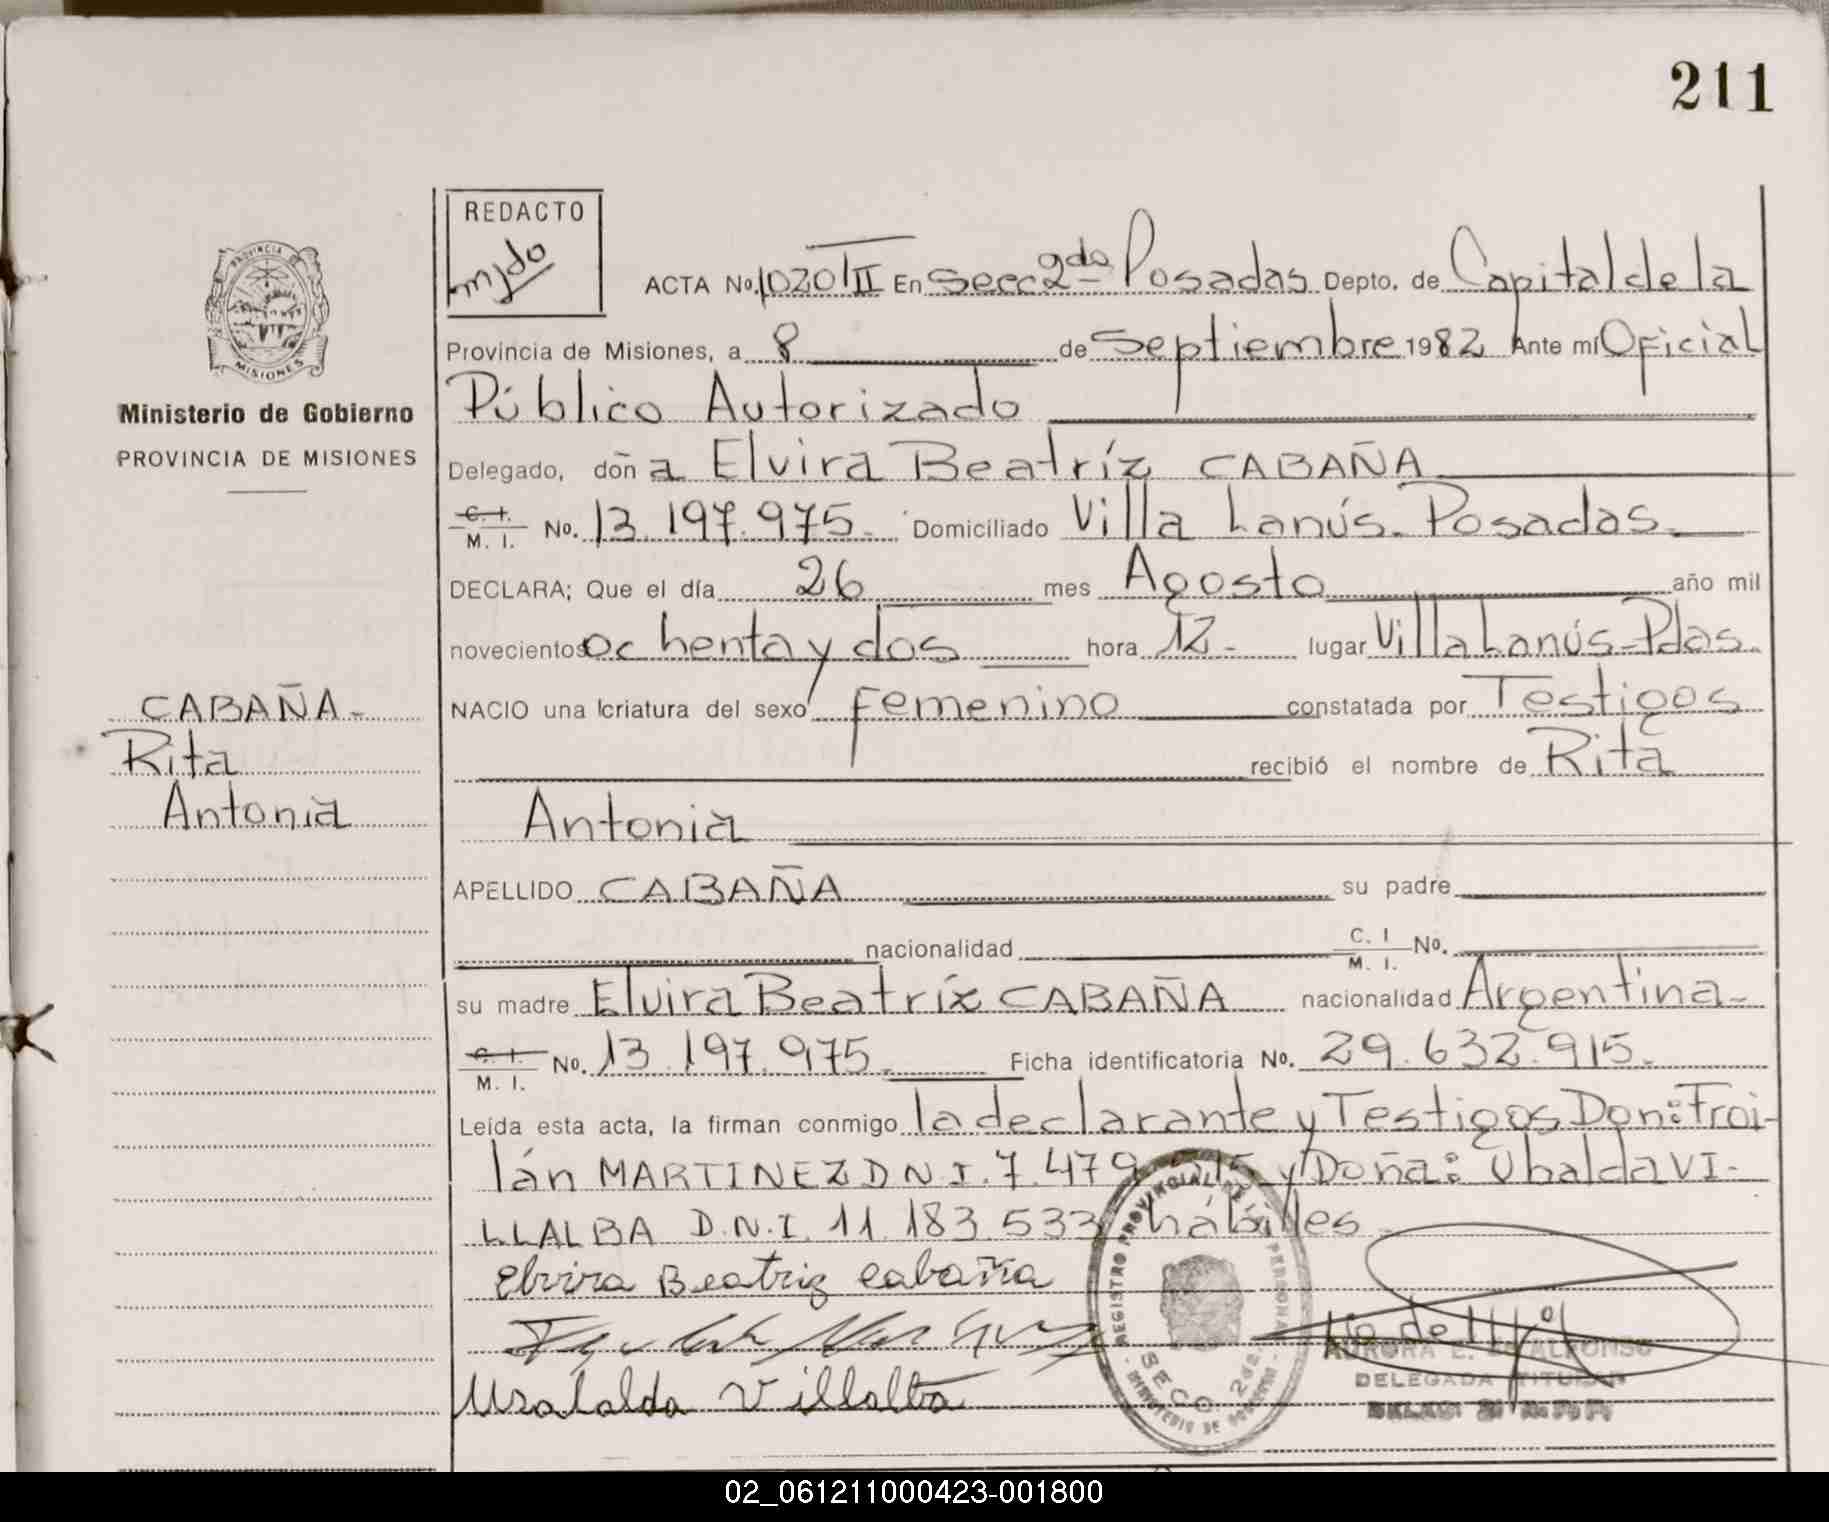 211
REDACTO
mydo
PROVINCIA DE MISIONES
Ministerio de Gobierno
PROVINCIA DE MISIONES
ACTA No. 1020 T II En Secc 2da Posadas Depto. de Capital de la
Provincia de Misiones, a 8 de Septiembre 1982 Ante mí Oficial
Público Autorizado
Delegado, doña Elvira Beatríz CABAÑA
C. I. M. I. No. 13.197.975. Domiciliado Villa Lanús. Posadas.
DECLARA; Que el día 26 mes Agosto año mil
novecientos ochenta y dos hora 12- lugar Villa Lanús-Pdas.
CABAÑA-
Rita
Antonia
NACIO una criatura del sexo femenino constatada por Testigos
recibió el nombre de Rita
Antonia
APELLIDO CABAÑA su padre
nacionalidad C. I M. I. No.
su madre Elvira Beatríx CABAÑA nacionalidad Argentina-
C. I. M. I. No. 13.197.975. Ficha identificatoria No. 29.632.915.
Leída esta acta, la firman conmigo la declarante y Testigos Don: Froi-
lán MARTINEZ D N.I. 7.479 y Doña: Ubalda VI-
LLALBA D.N.I. 11.183.533 hábiles
Elvira Beatriz Cabaña
Villalba
REGISTRO PROVINCIAL DE LAS PERSONAS
SECC. 2da.
MINISTERIO DE GOBIERNO
AURORA E. DE ALFONSO
DELEGADA TITULAR
02_061211000423-001800